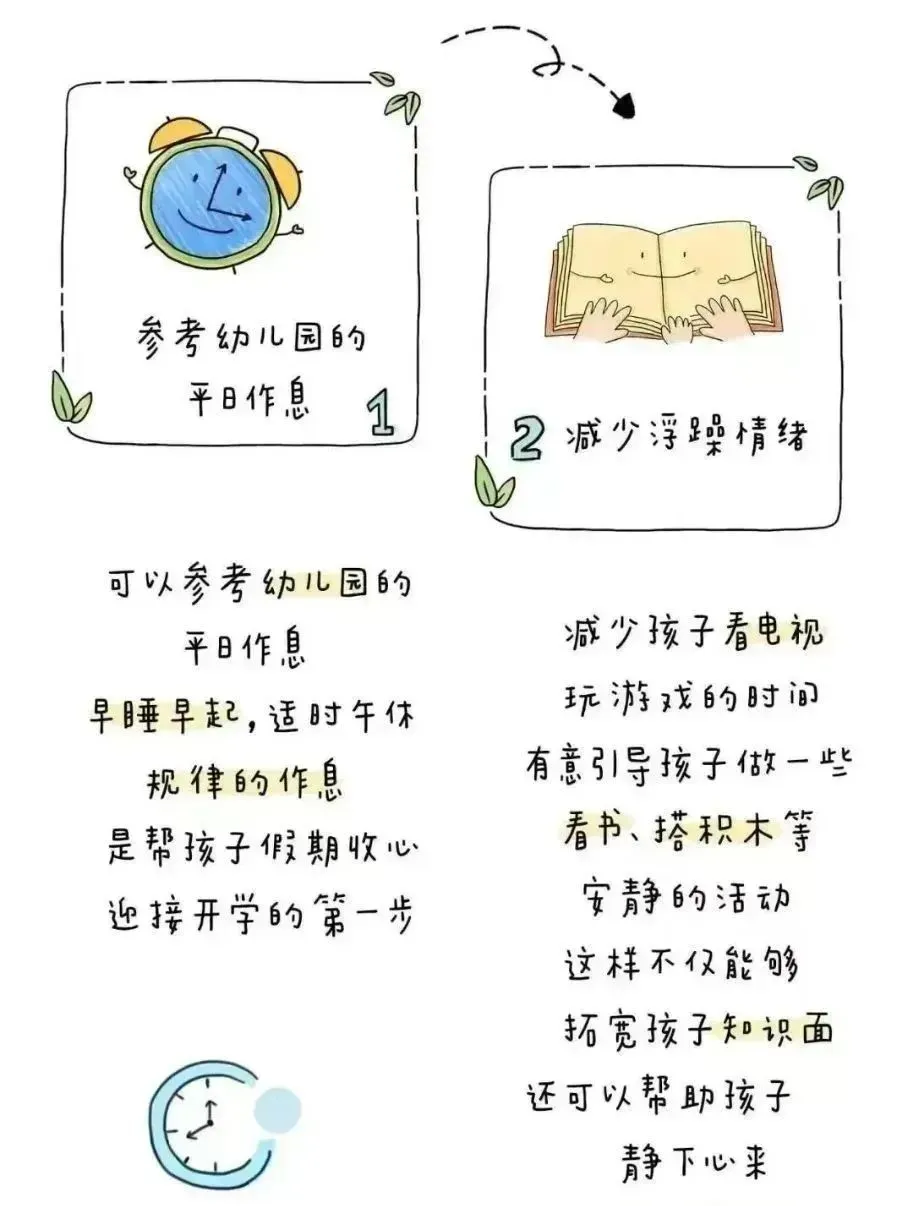 参考幼儿园的
平日作息
1
可以参考幼儿园的
平日作息
早睡早起,适时午休
规律的作息
是帮孩子假期收心
迎接开学的第一步
2 减少浮躁情绪
减少孩子看电视
玩游戏的时间
有意引导孩子做一些
看书、搭积木等
安静的活动
这样不仅能够
拓宽孩子知识面
还可以帮助孩子
静下心来